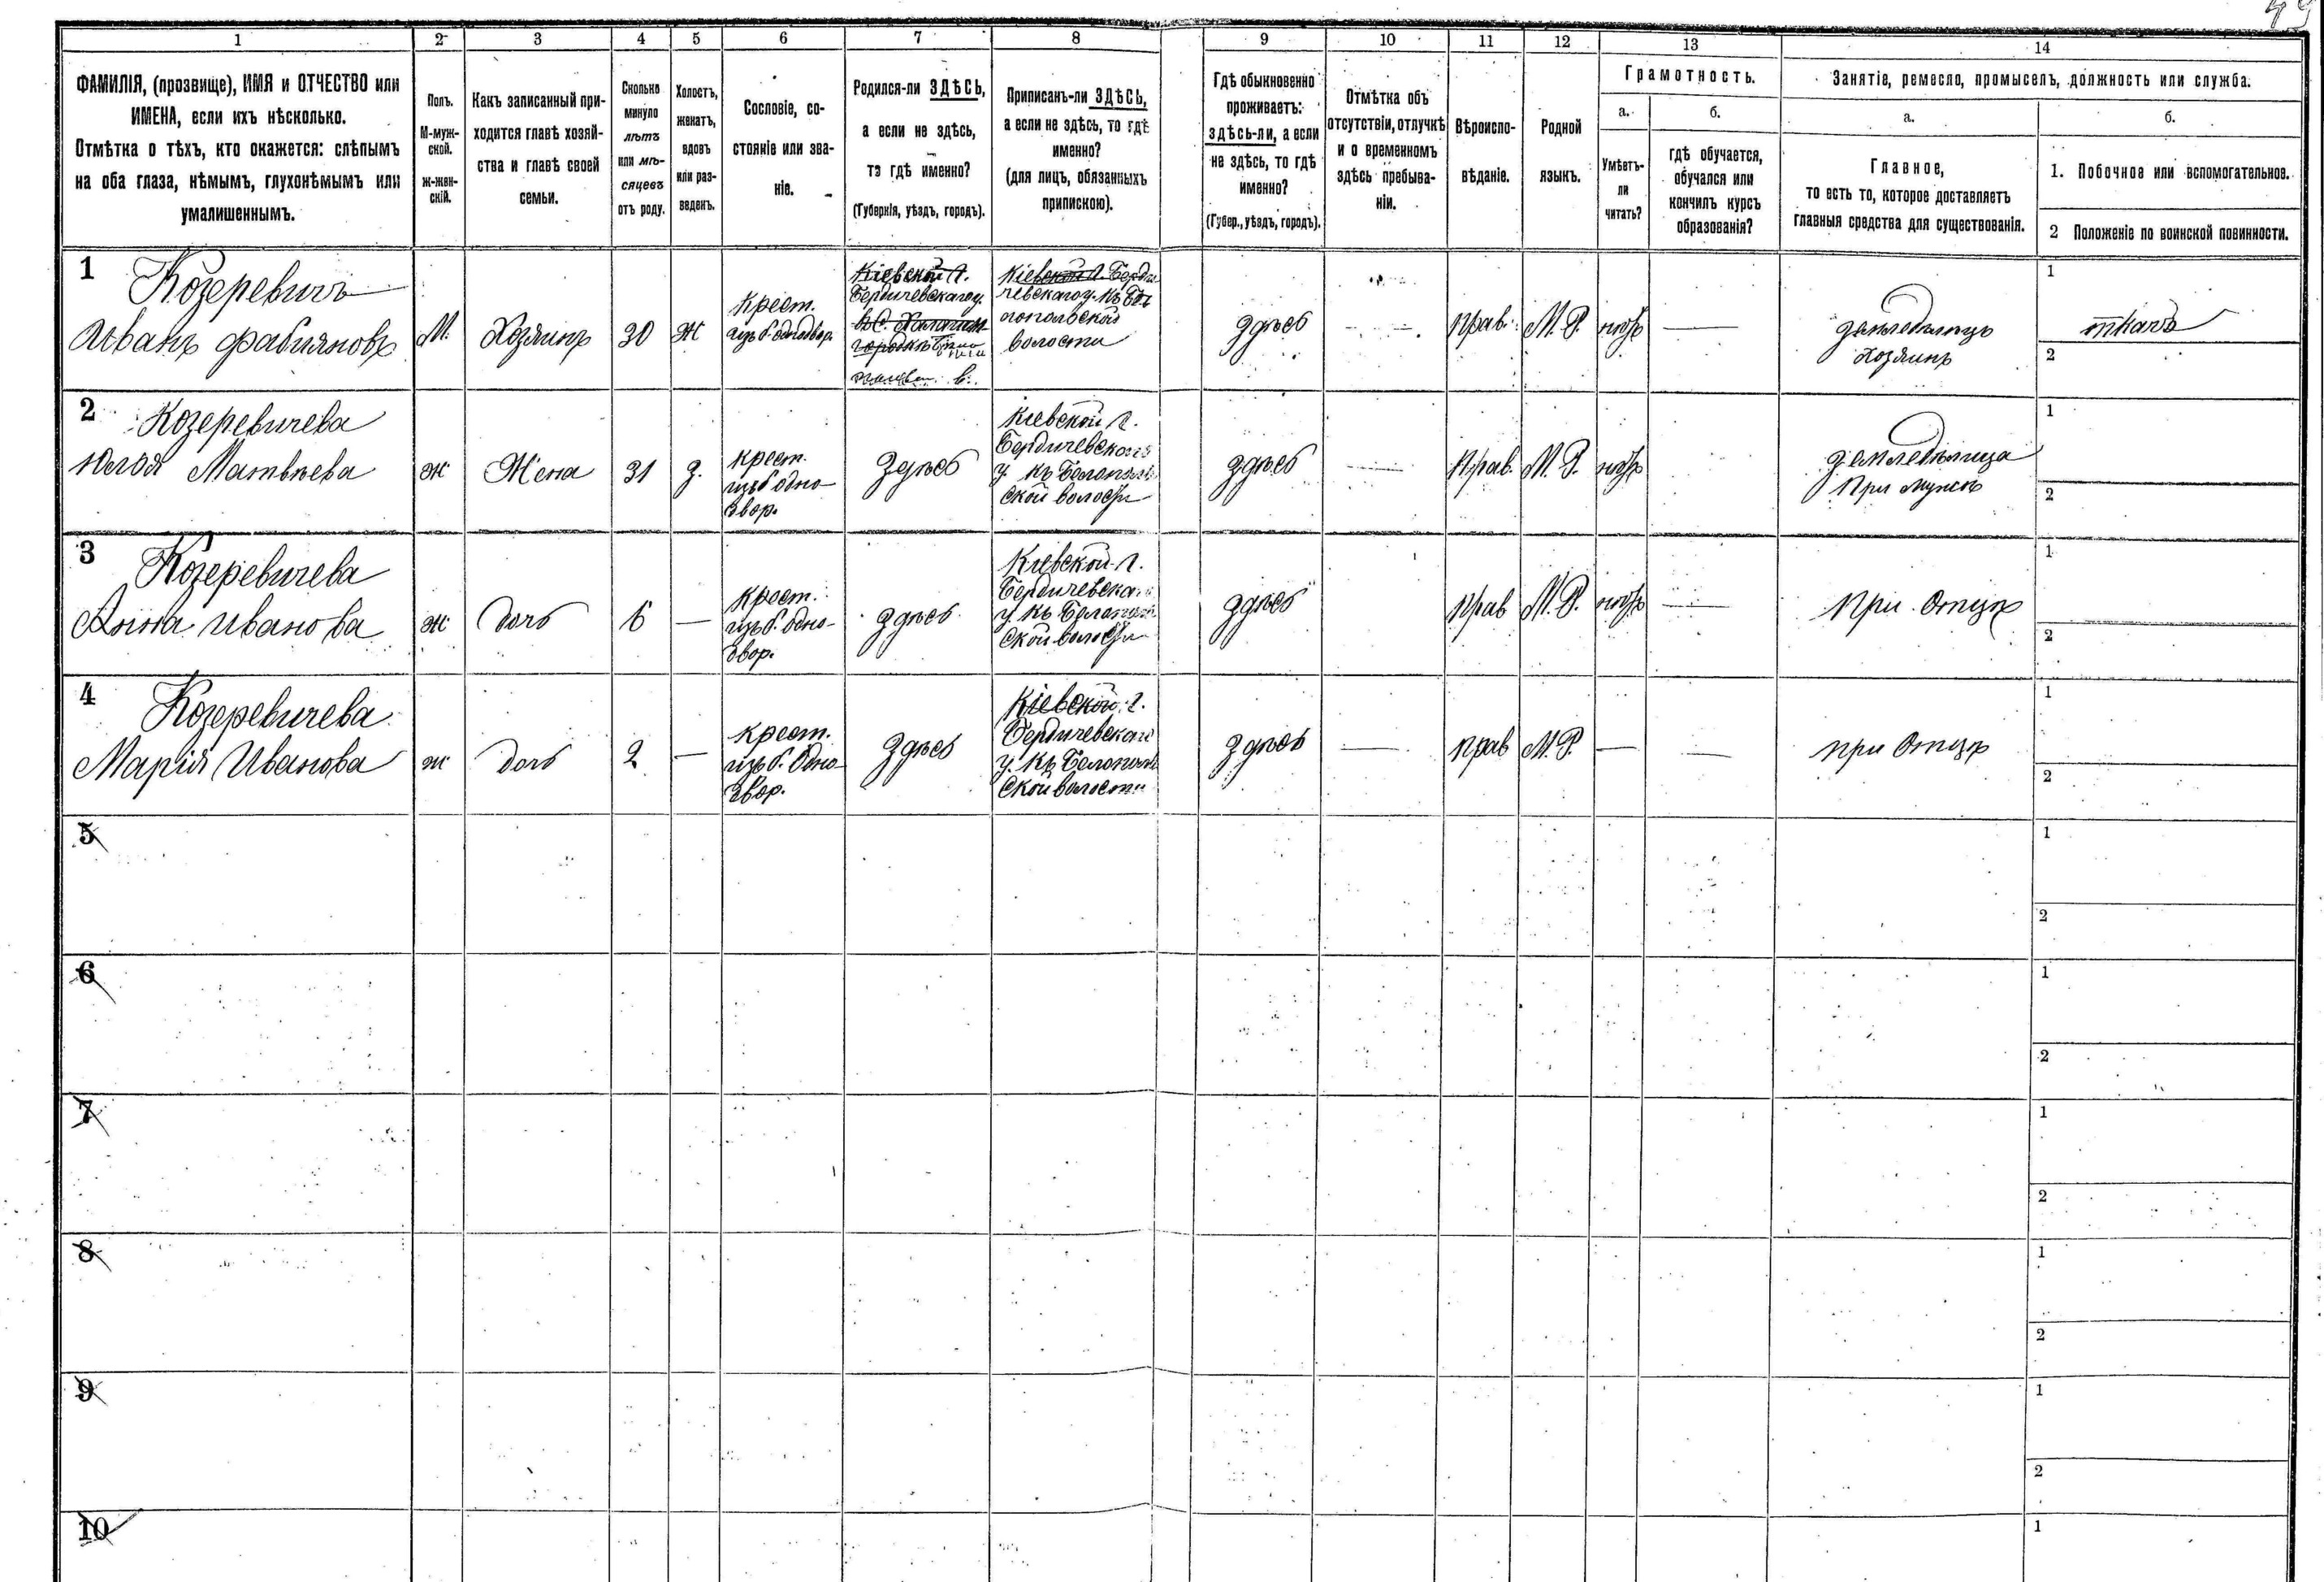 1 2 3 4 5 6 7 8 9 10 11 12 13 14
ФАМИЛІЯ, (прозвище), ИМЯ и ОТЧЕСТВО или
ИМЕНА, если ихъ нѣсколько.
Отмѣтка о тѣхъ, кто окажется: слѣпымъ
на оба глаза, нѣмымъ, глухонѣмымъ или
умалишеннымъ.
Полъ.
М-муж-
ской.
Ж-жен-
скій.
Какъ записанный при-
ходится главѣ хозяй-
ства и главѣ своей
семьи.
Сколько
минуло
лѣтъ
или мѣ-
сяцевъ
отъ роду.
Холостъ,
женатъ,
вдовъ
или раз-
веденъ.
Сословіе, со-
стояніе или зва-
ніе.
Родился-ли ЗДѢСЬ,
а если не здѣсь,
то гдѣ именно?
(Губернія, уѣздъ, городъ).
Приписанъ-ли ЗДѢСЬ,
а если не здѣсь, то гдѣ
именно?
(для лицъ, обязанныхъ
припискою).
Гдѣ обыкновенно
проживаетъ:
здѣсь-ли, а если
не здѣсь, то гдѣ
именно?
(Губер., уѣздъ, городъ).
Отмѣтка объ
отсутствіи, отлучкѣ
и о временномъ
здѣсь пребыва-
ніи.
Вѣроиспо-
вѣданіе.
Родной
языкъ.
Грамотность.
а.
Умѣетъ-
ли
читать?
б.
гдѣ обучается,
обучался или
кончилъ курсъ
образованія?
Занятіе, ремесло, промыселъ, должность или служба.
а.
Главное,
то есть то, которое доставляетъ
главныя средства для существованія.
б.
1. Побочное или вспомогательное.
2 Положеніе по воинской повинности.
1
Козеревичъ
Иванъ Фабияновъ
М.
Хозяинъ
30
Ж
Крест.
изъ б. однодвор.
Кіевской г.
Бердичевскаго у.
Кіевской г. Берди
чевскаго у. къ Бѣ
лопольской
волости
здѣсь
Прав.
М. Р.
нѣтъ
земледѣлецъ
хозяинъ
1
ткачъ
2
2
Козеревичева
Матвѣева
ж
Жена
31
З.
крест.
изъ б. одно-
двор.
Здѣсь
Кіевской г.
Бердичевскаго
у. къ Белополь
ской волости
здѣсь
Прав.
М. Р.
нѣтъ
земледѣлица
При мужѣ
1
2
3
Козеревичева
Анна Иванова
ж
дочь
6
крест.
изъ б. одно-
двор.
здѣсь
Кіевской г.
Бердичевскаго
у. къ Белополь
ской волости
здѣсь
Прав
М. Р.
нѣтъ
При Отцѣ
1
2
4
Козеревичева
Марія Иванова
ж
дочь
2
крест.
изъ б. одно-
двор.
Здѣсь
Кіевской г.
Бердичевскаго
у. къ Белополь
ской волости
здѣсь
прав
М. Р.
при Отцѣ
1
2
5
1
2
6
1
2
7
1
2
8
1
2
9
1
2
10
1